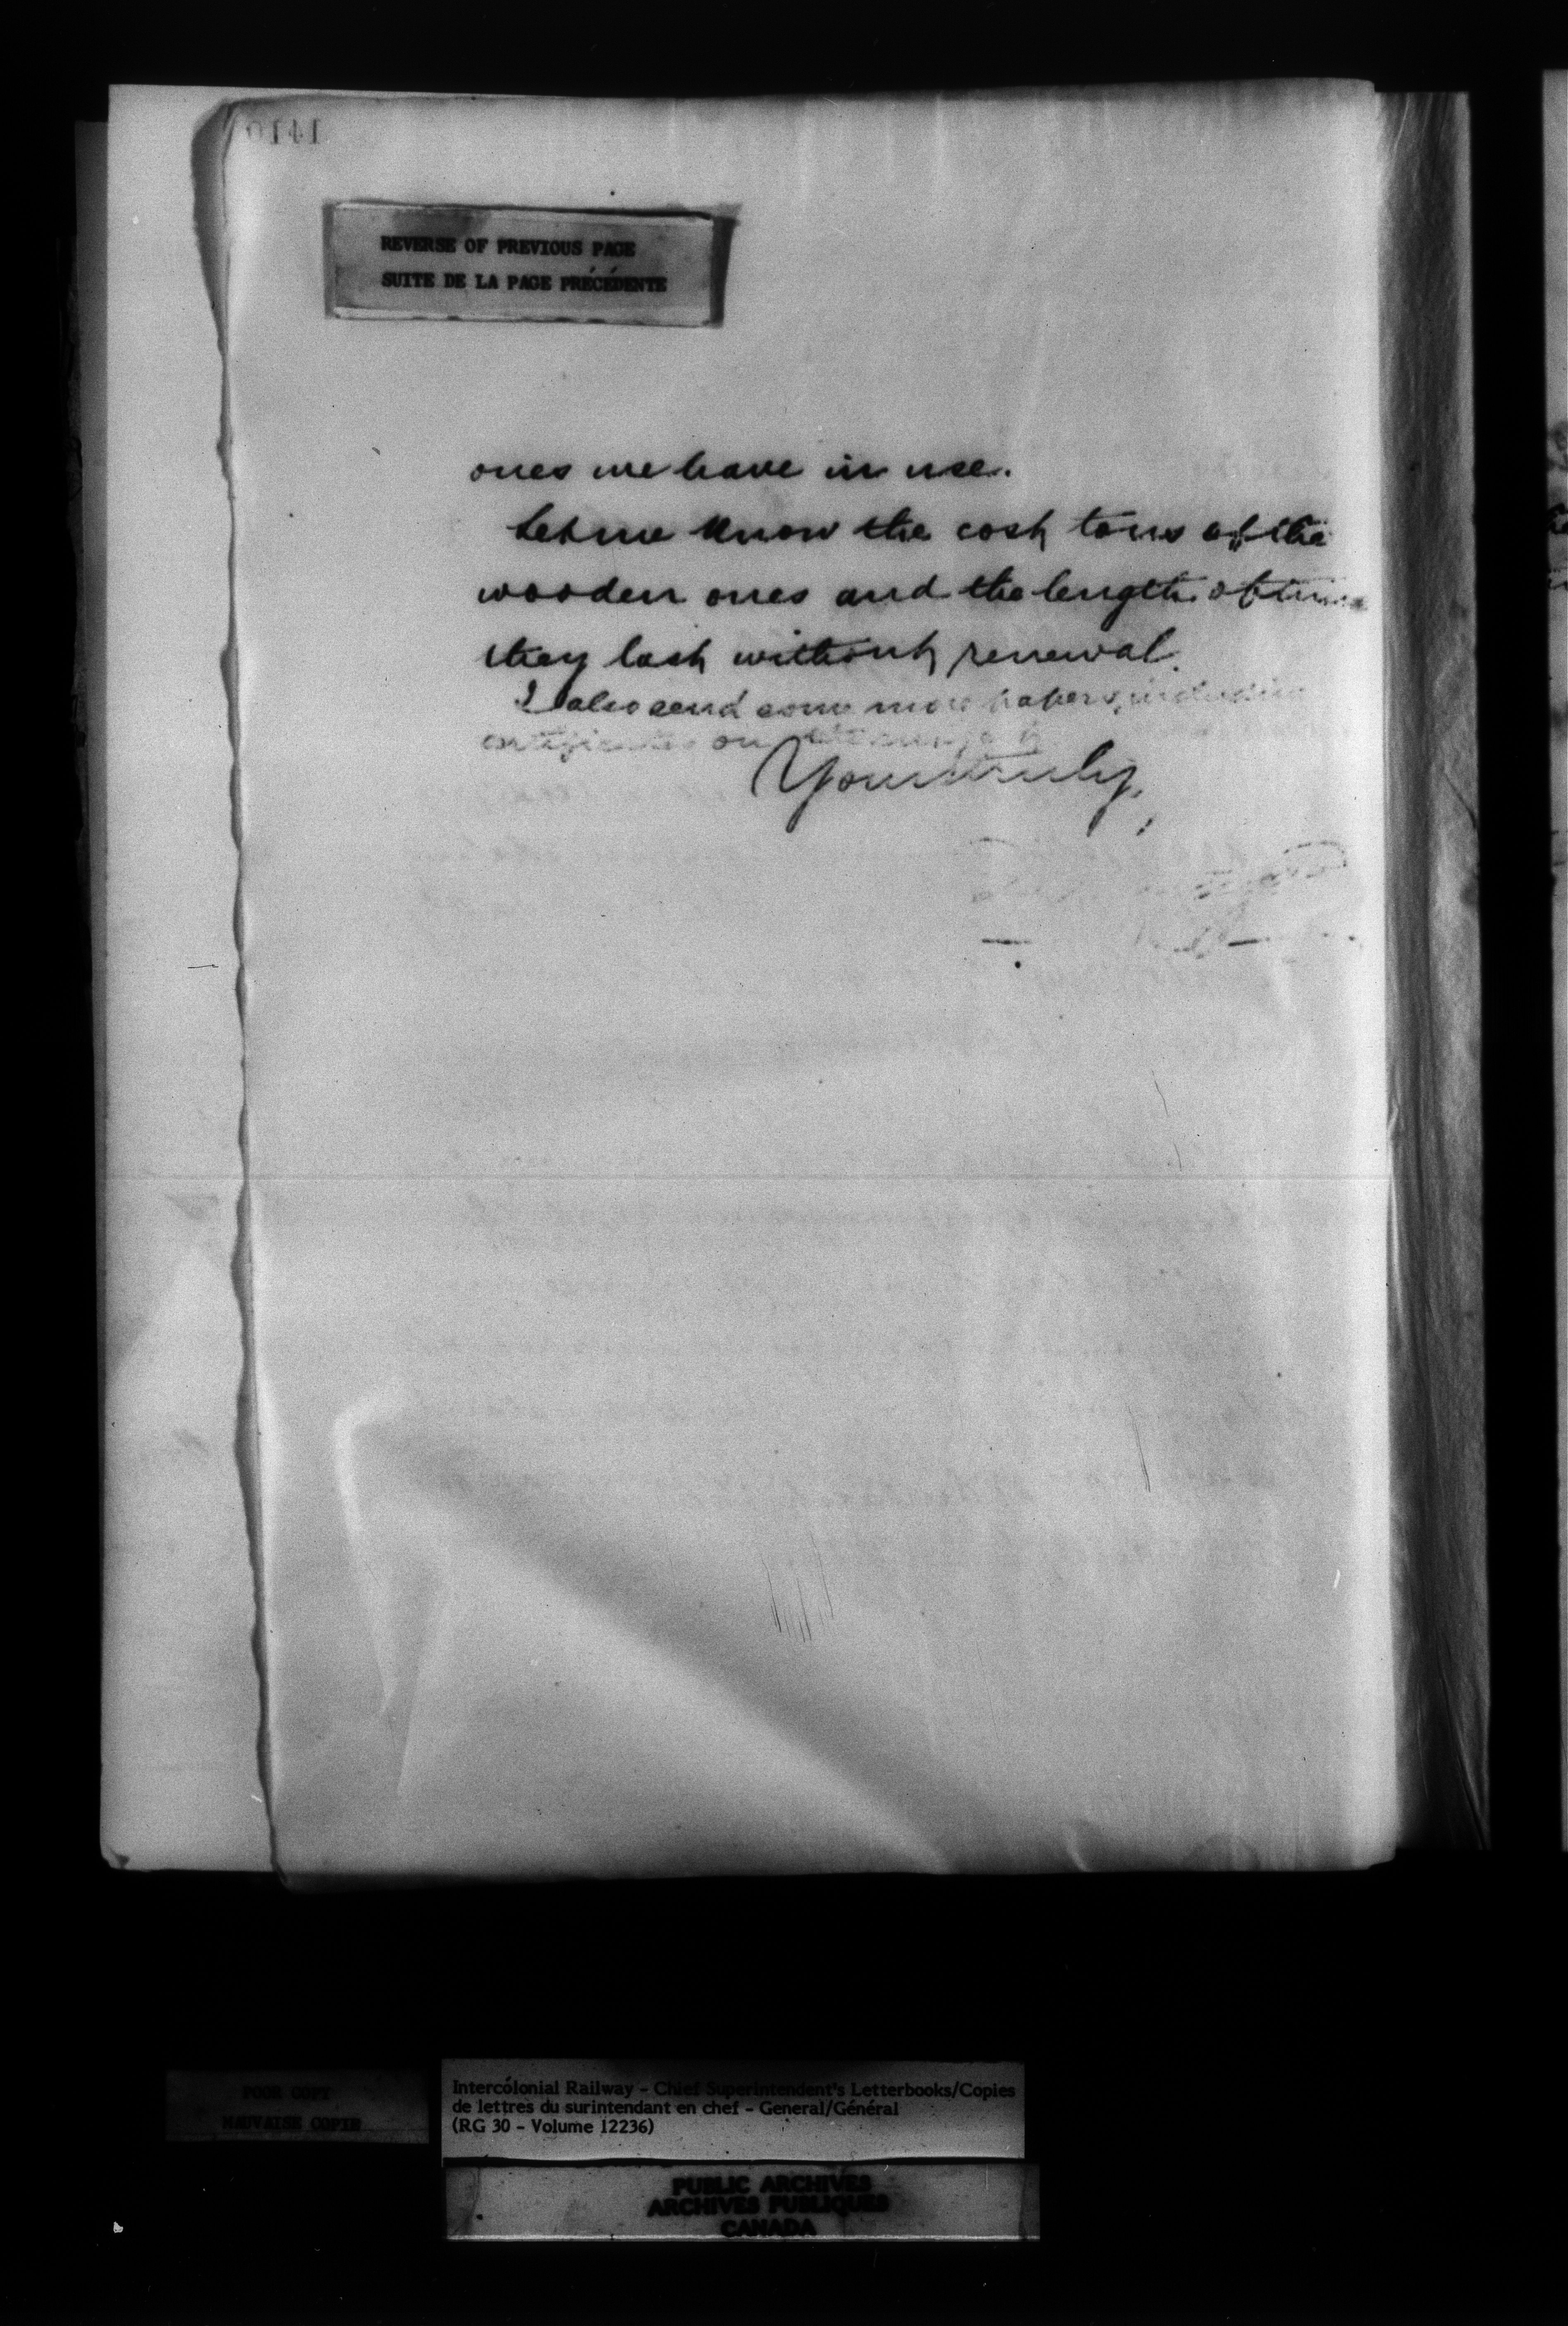 1410
REVERSE OF PREVIOUS PAGE
SUITE DE LA PAGE PRÉCÉDENTE
ones we have in use.
Let me know the cost to us of the
wooden ones and the length of time
they last without renewal.
I also send some more papers, including
certificates on
Yours truly,
POOR COPY
MAUVAISE COPIE
Intercolonial Railway - Chief Superintendent's Letterbooks/Copies
de lettres du surintendant en chef - General/Général
(RG 30 - Volume 12236)
PUBLIC ARCHIVES
ARCHIVES PUBLIQUES
CANADA